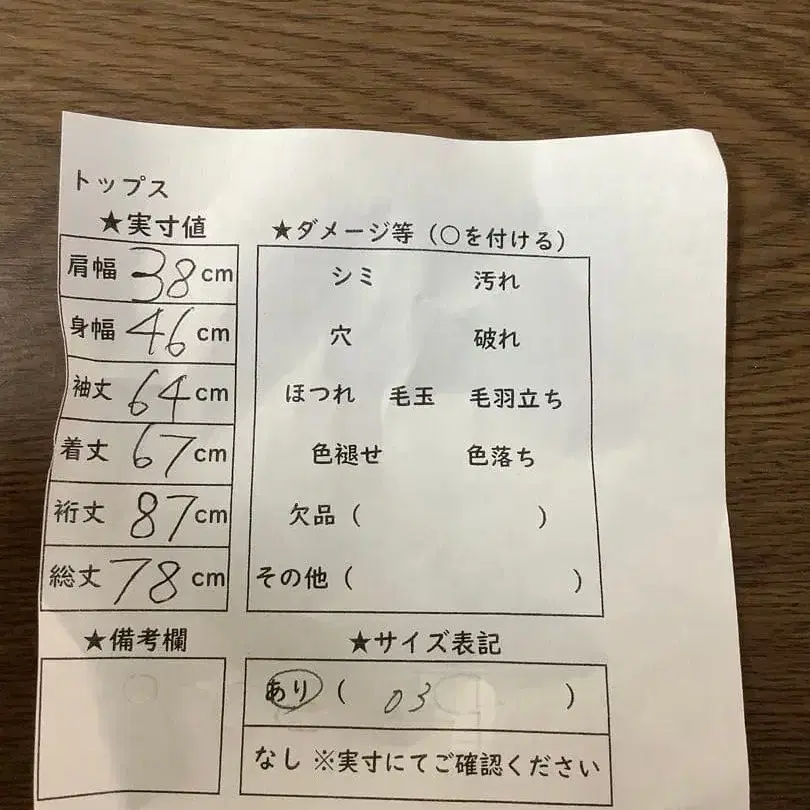 トップス
★実寸値
肩幅 38cm
身幅 46cm
袖丈 64cm
着丈 67cm
裄丈 87cm
総丈 78cm
★ダメージ等（○を付ける）
シミ 汚れ
穴 破れ
ほつれ 毛玉 毛羽立ち
色褪せ 色落ち
欠品（ ）
その他（ ）
★備考欄
★サイズ表記
あり（ 03 ）
なし ※実寸にてご確認ください